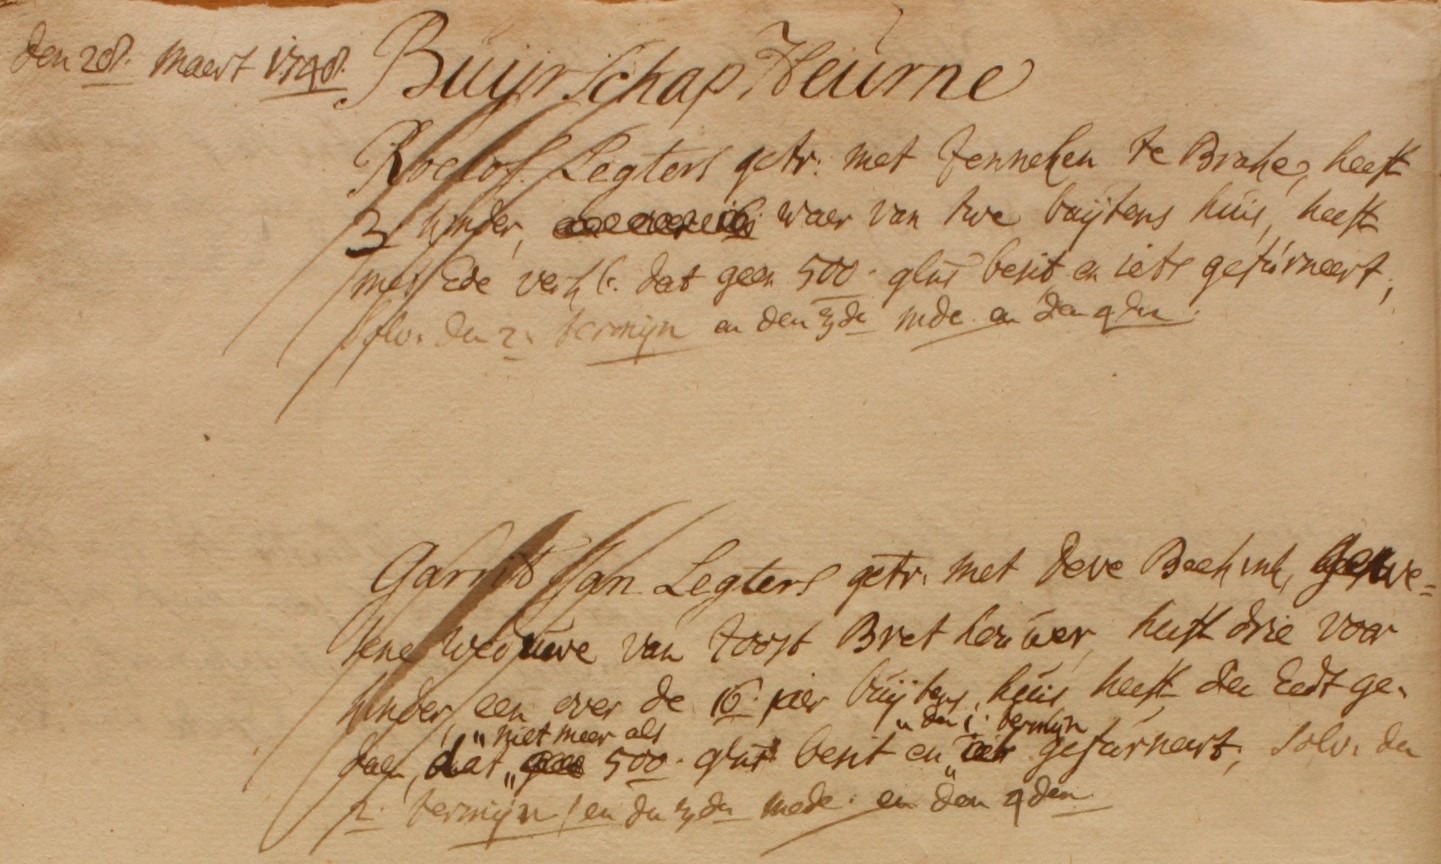 den 28. Maert 1748. Buijrschap Heurne
Roelof Legters getr. met Jenneken te Brake, heeft
3 kinder, waer van twe buijtens huis, heeft
met Ede verkl. dat geen 500. glns besit en iets gefurneert,
solv. den 2. termijn en den 3de mede en den 4den.
Garrit Jan Legters getr. met Deve Beekink, gewe=
sene Weduwe van Joost Brethouwer, heeft drie voor
kinder, een over de 16. jaer buijtens huis, heeft den Eedt ge-
" niet meer als " den 1. termijn
daen, dat " 500. glns besit en " gefurneert, solv. den
2. termijn / en den 3den mede. en den 4den